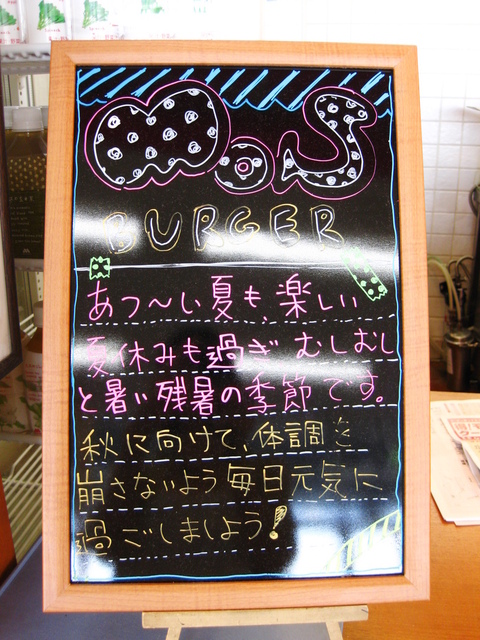 MOS
BURGER
あつ〜い夏も、楽しい
夏休みも過ぎ むしむし
と暑い残暑の季節です。
秋に向けて、体調を
崩さないよう毎日元気に
過ごしましょう!